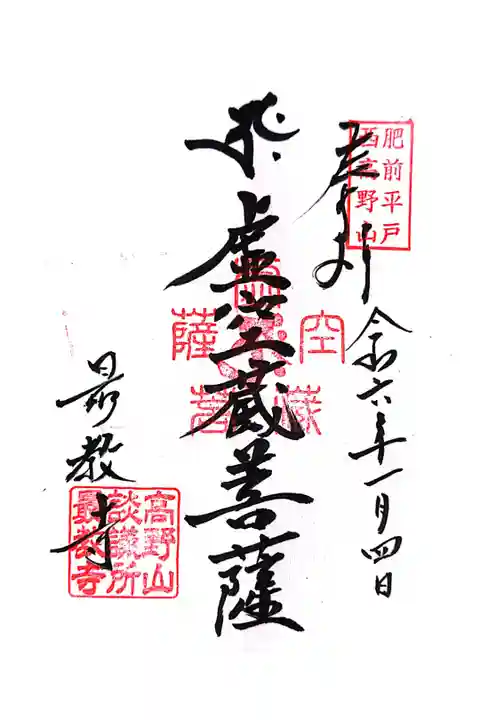 肥前平戸
西高野山
奉拝
令和六年一月四日
虚空蔵菩薩
虚空蔵菩薩
最教寺
高野山
談議所
最教寺